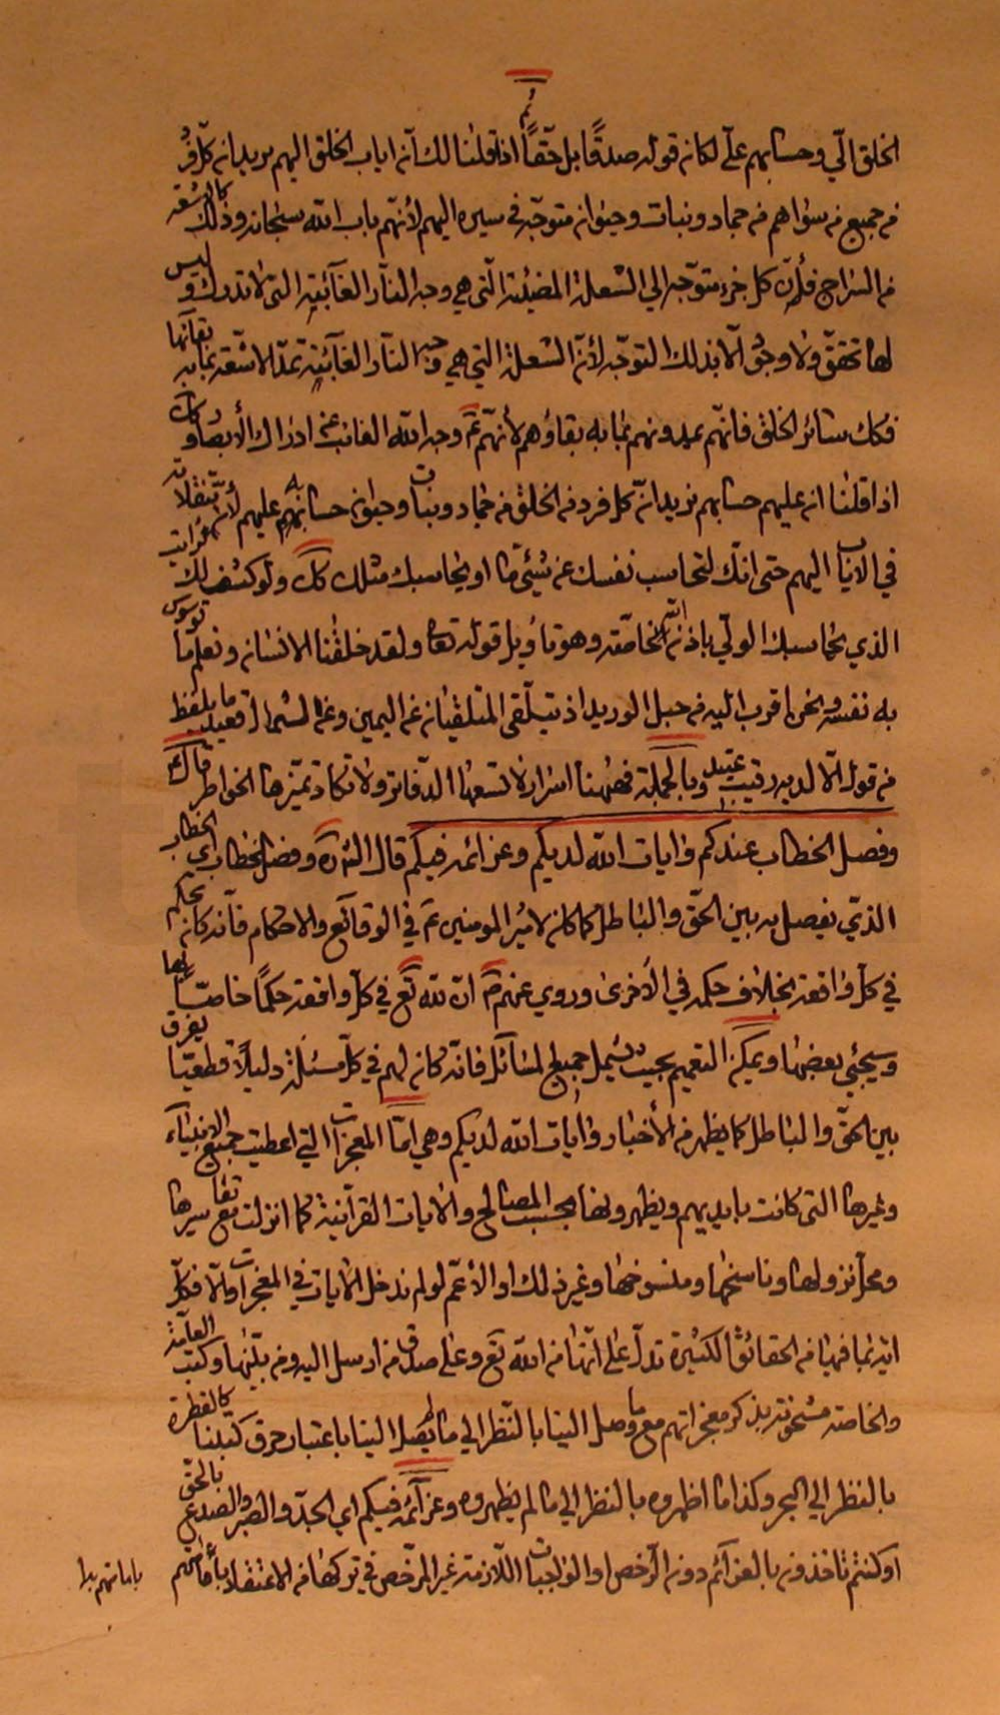 ثم
الخلق الىّ وحسابهم علىّ لكان قوله صدقاً بل حقاً اذا قلنا لك انّ اياب الخلق اليهم نريد انه كلّ فرد
من جميع من سواهم من جماد ونبات وحيوان متوجّه في سيره اليهم لأنهم باب الله سبحانه وذلك كالاشعة
من السّراج فأنّ كل جزء متوجّه الي الشعلة المضيئة الّتي هي وجه النّار الغآئبة التى لا تدرك وليس
لها تحقق ولا وجود الّا بذلك التوجّه لأنّ الشعلة التي هي وجه النّار الغآئبة تمدّ الاشّعة بما به بقآئها
فكك سائر الخلق فانّهم يمدونهم بما به بقاؤهم لأنهم عۤ وجه الله الغائب عن ادراك الأبصار وكك
اذا قلنا ان عليهم حسابهم نريد انّ كل فرد من الخلق من جماد ونبات وحيوان حسابه عليهم لأنّهم تنقلاته
في الاياب اليهم حتى انّك لتحاسب نفسك عن شيئ ما او يحاسبك مثلك كك ولو كشف لك لرايت
الذي يحاسبك الولّي باذن الله الخاصّة وهو تاويل قوله تعا ولقد خلقنا الانسان ونعلم ما توسوس
به نفسه ونحن اقرب اليه من حبل الوريد اذ يتلّقى المتلقيان عن اليمين وعن الشمال قعيد ما يلفظ
من قول الّا لديه رقيب عتيد وبالجملة فههنا اسرار لا تسعها الدّفاتر ولا تكاد تميّزها الخواطر قاك
وفصل الخطاب عندكم وايات الله لديكم وعزائمه فيكم قال الشره وفصل الخطاب اي الخطاب
الذيّ يفصل به بين الحقّ والباطل كما كان لامير المومنين عۤ في الوقائع والاحكام فانّه كان يحكم
في كلّ واقعة بخلاف حكمه في الأخرى وروي عنهم عۤ ان لله تع في كلّ واقعة حكمًا خاصّا بها
وسيجئي بعضها ويمكن التعميم بحيث يشمل جميع المسآئل فانّه كان لهم في كلّ مسئلة دليلاً قطعيّا يفرق
بين الحقّ والباطل كما يظهر من الأخبار وايات الله لديكم وهي امّا المعجزات التي اعطيت جميع الانبياء
وغيرها التى كانت بايديهم ويظهرونها بحسب المصالح والايات القرآنية كما انزلت مع تفاسيرها
ومحلّ نزولها وناسخها ومنسوخها وغير ذلك او الأعمّ لو لم ندخل الايات في المعجزات والّا فكلّ
اية بما فيها من الحقائق الكثيرة تدلّ على انّها من الله تع وعلى صدق من ارسل اليه ومن يبّلغها وكتب العآمّة
والخاصّة مشحونة بذكر معجزاتهم مع ما وصل الينا بالنّظر الي ما لم يصل الينا باعتبار حرق كتبنا كالقطرة
بالنظر الي البحر وكذا ما اظهروه بالنظر الي ما لم يظهروه وعزآئمه فيكم اي الجدّ والصّبر والصدع بالحقّ
او كنتم تاخذون بالعزآئم دون الرّخص او الواجبات اللّازمة غير المرّخص في تركها من الاعتقاد بامامتهم
بامامتهم بدل